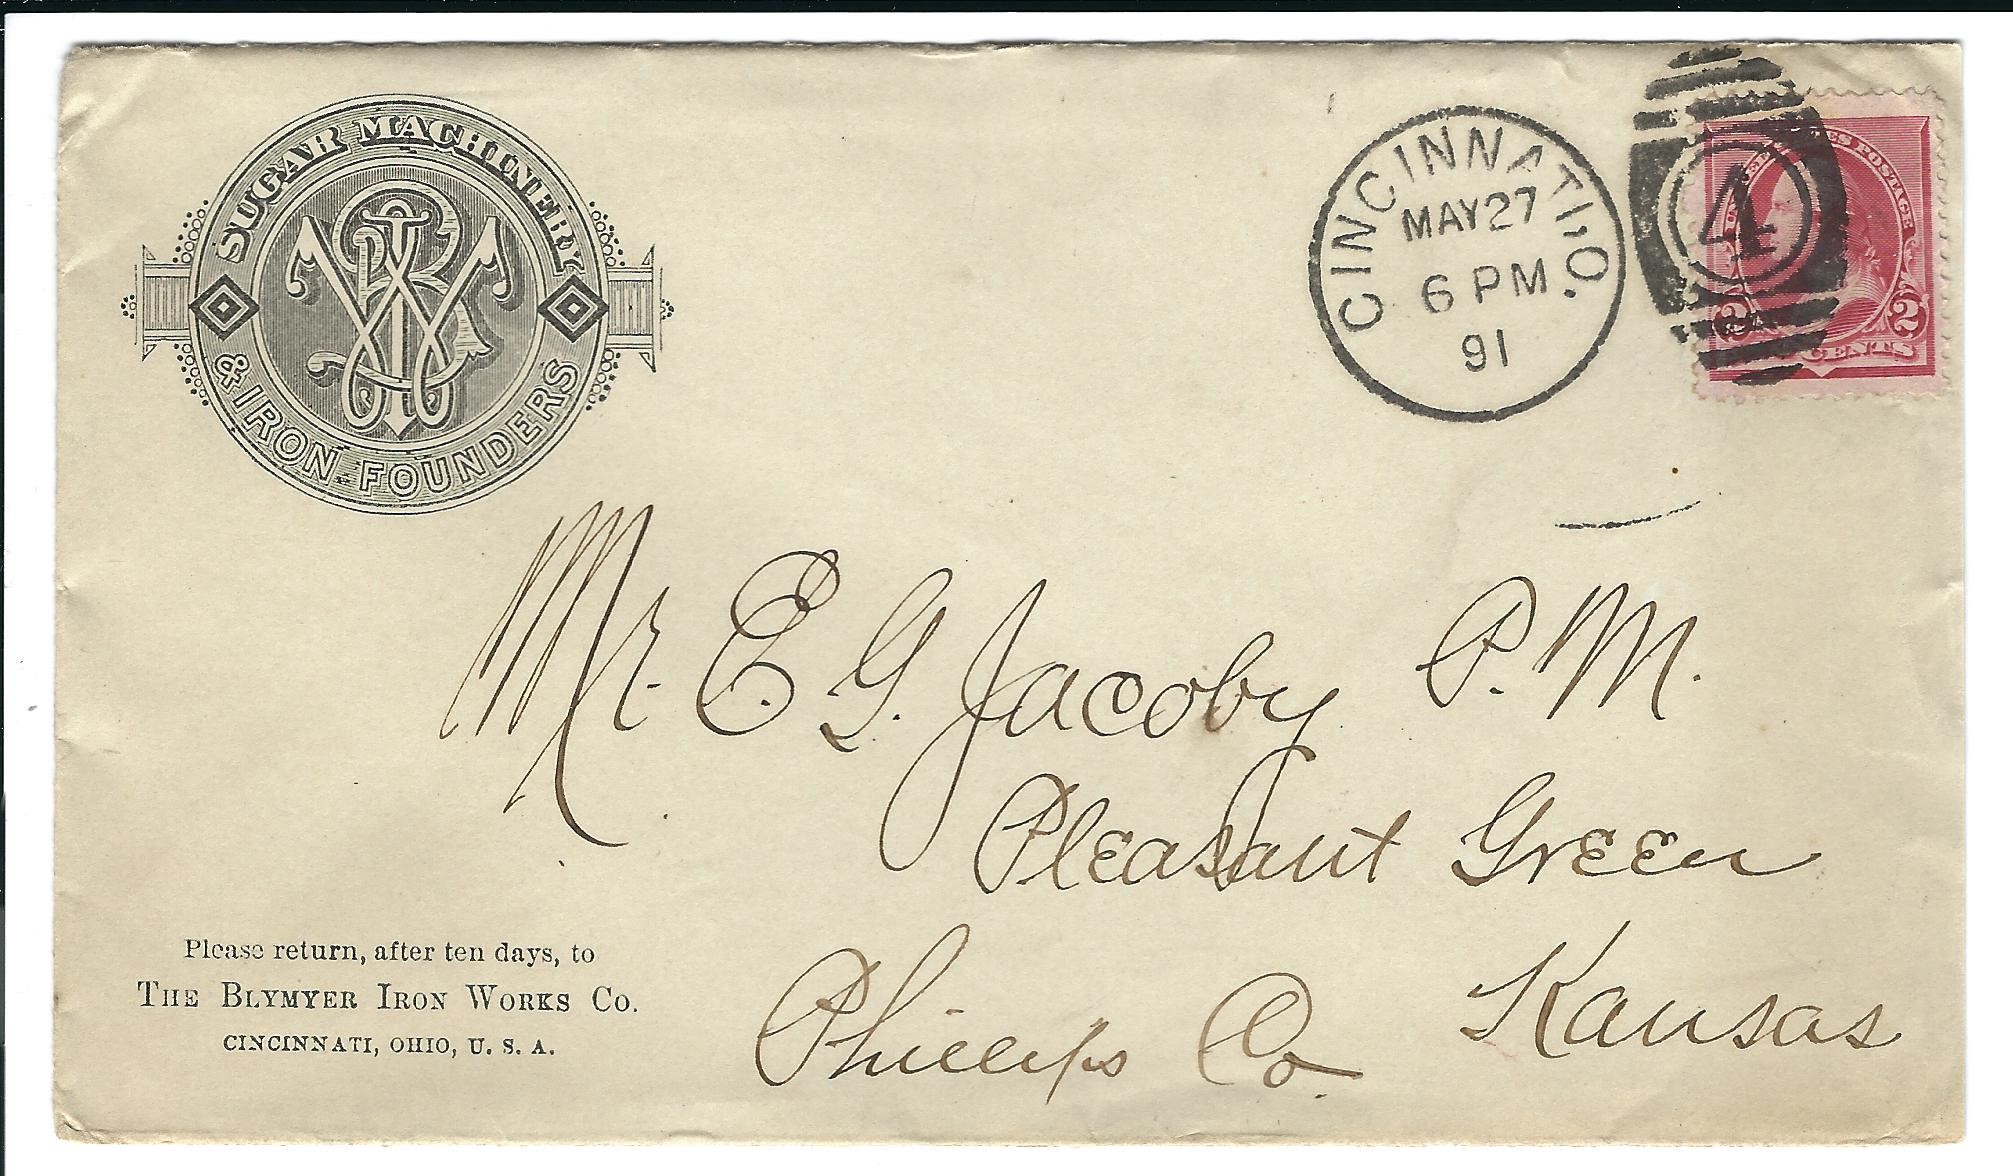 SUGAR MACHINERY
& IRON FOUNDERS
CINCINNATI, O.
MAY 27
6 PM
91
4
UNITED STATES POSTAGE
2 2
CENTS
Mr. E. G. Jacoby P. M.
Pleasant Green
Phillips Co Kansas
Please return, after ten days, to
THE BLYMYER IRON WORKS CO.
CINCINNATI, OHIO, U. S. A.